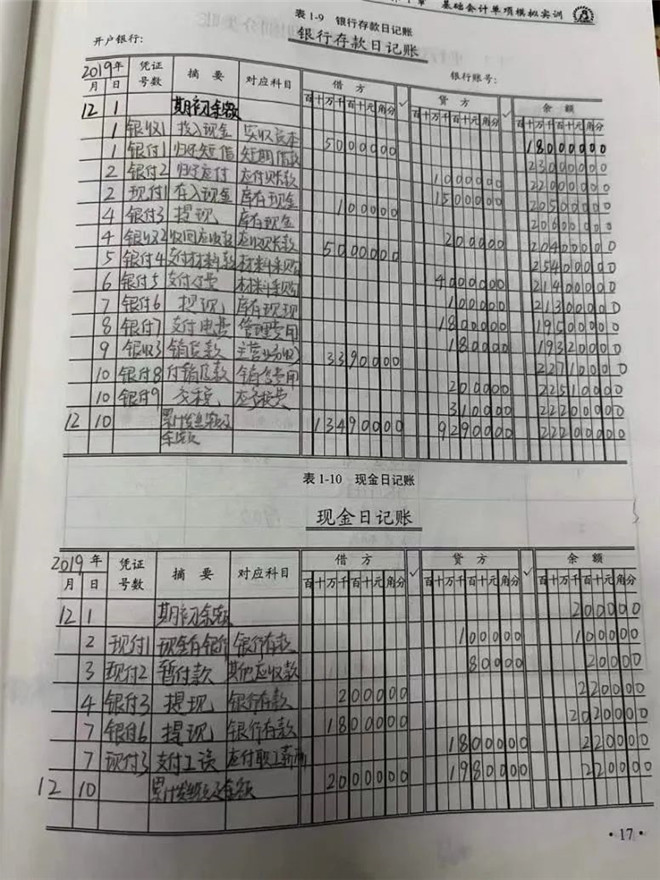 基础会计单项模拟实训
表 1-9 银行存款日记账
银行存款日记账
开户银行: 银行账号:
2019年 凭证号数 摘要 对应科目 借方 贷方 余额
月 日 百十万千百十元角分 √ 百十万千百十元角分 √ 百十万千百十元角分
12 1 期初余额 18000000
1 银收1 投入现金 实收资本 5000000 23000000
1 银付1 归还短借 短期借款 1000000 22000000
2 银付2 归还应付 应付账款 1500000 20500000
2 现付1 存入现金 库存现金 100000 20600000
4 银付3 提现 库存现金 200000 20400000
4 银收2 收回应收款 应收账款 5000000 25400000
5 银付4 支付材料款 材料采购 4000000 21400000
6 银付5 支付运费 材料采购 100000 21300000
7 银付6 提现 库存现现 1800000 19500000
8 银付7 支付电费 管理费用 180000 19320000
9 银收3 销货款 主营业务收 3390000 22710000
10 银付8 付销货款 销售费用 200000 22510000
10 银付9 交税 应交税费 310000 22200000
12 10 累计发生额及余额 13490000 9290000 22200000
表 1-10 现金日记账
现金日记账
2019年 凭证号数 摘要 对应科目 借方 贷方 余额
月 日 百十万千百十元角分 √ 百十万千百十元角分 √ 百十万千百十元角分
12 1 期初余额 200000
2 现付1 现金存银行 银行存款 100000 100000
3 现付2 暂付款 其他应收款 80000 20000
4 银付3 提现 银行存款 200000 220000
7 银付6 提现 银行存款 1800000 2020000
7 现付3 支付工资 应付职工薪酬 1800000 220000
12 10 累计发生额及余额 2000000 1980000 220000
·17·